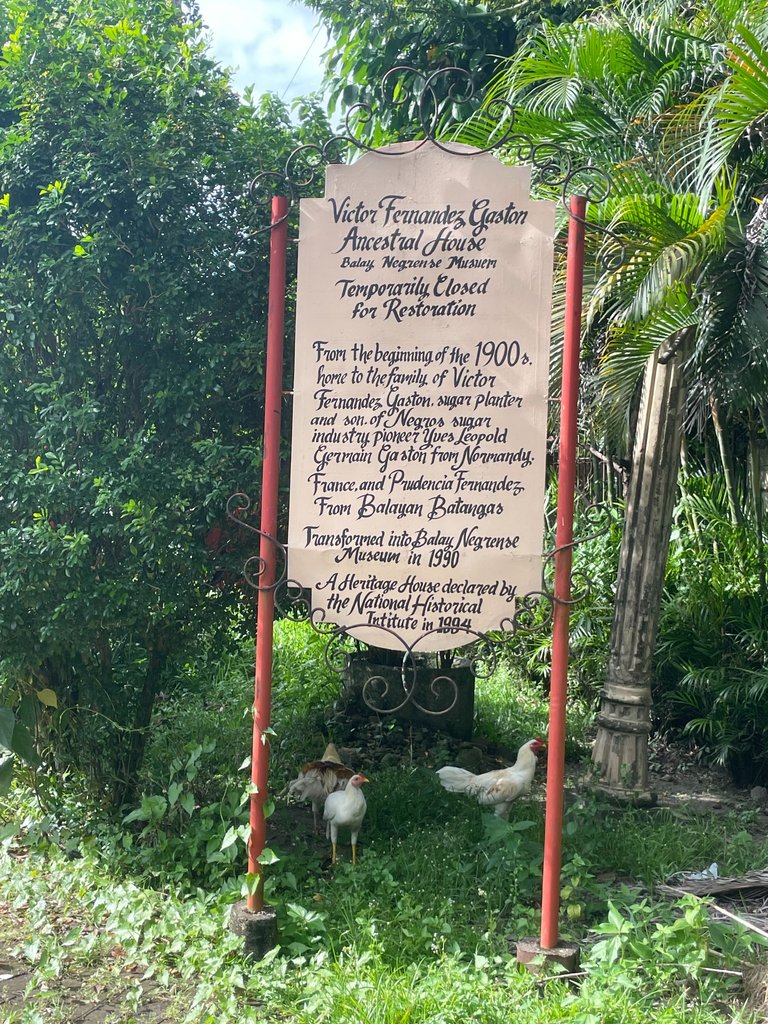 Victor Fernandez Gaston
Ancestral House
Balay Negrense Musuem
Temporarily Closed
for Restoration
From the beginning of the 1900s,
home to the family of Victor
Fernandez Gaston, sugar planter
and son of Negros sugar
industry pioneer Yves Leopold
Germain Gaston from Normandy,
France, and Prudencia Fernandez
From Balayan Batangas
Transformed into Balay Negrense
Museum in 1990
A Heritage House declared by
the National Historical
Intitute in 1994